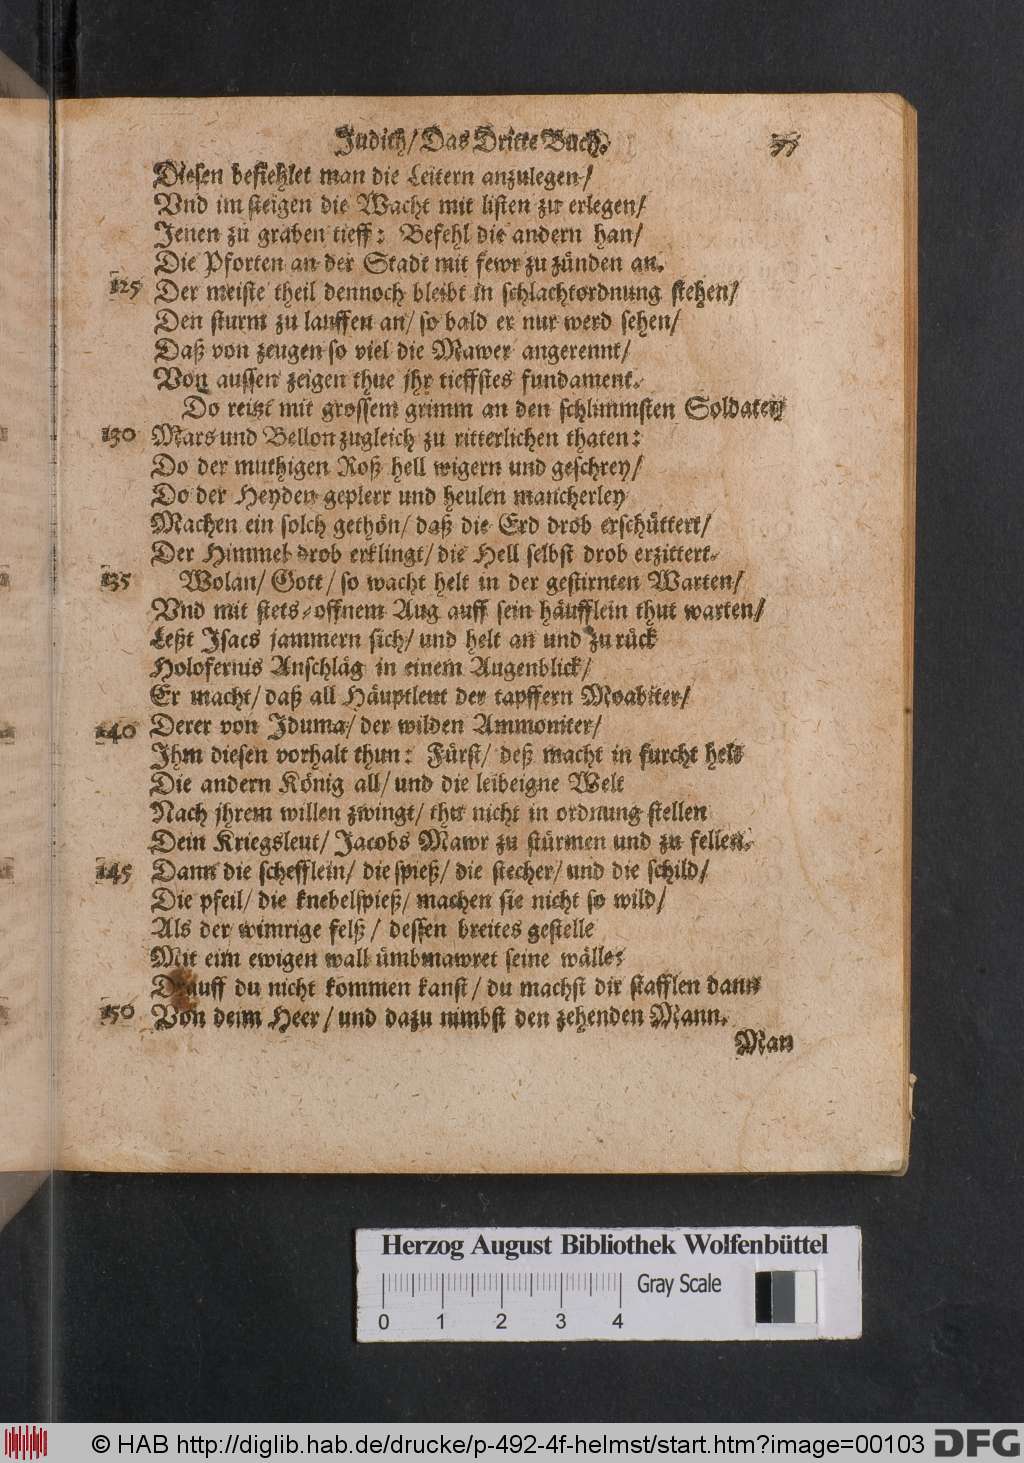 Judith/ Das Dritte Buch.
Diesen befiehlet man die Leitern anzulegen/
Vnd im steigen die Wacht mit listen zu erlegen/
Jenen zu graben tieff: Befehl die andern han/
Die Pforten an der Stadt mit fewr zu zünden an.
125 Der meiste theil dennoch bleibt in schlachtordnung stehen/
Den sturm zu lauffen an/ so bald er nur werd sehen/
Daß von zeugen so viel die Mawer angerennt/
Von aussen zeigen thue jhr tieffstes fundament.
Do reitzt mit grossem grimm an den schlimmsten Soldaten
130 Mars und Bellon zugleich zu ritterlichen thaten:
Do der muthigen Roß hell wigern und geschrey/
Do der Heyden geplerr und heulen mancherley
Machen ein solch gethön/ daß die Erd drob erschüttert/
Der Himmel drob erklingt/ die Hell selbst drob erzittert.
135 Wolan/ Gott/ so wacht helt in der gestirnten Warten/
Vnd mit stets-offnem Aug auff sein häufflein thut warten/
Leßt Isacs jammern sich/ und helt an und zu rück
Holofernus Anschläg in einem Augenblick/
Er macht/ daß all Häuptleut der tapffern Moabiter/
140 Derer von Iduma/ der wilden Ammoniter/
Ihm diesen vorhalt thun: Fürst/ deß macht in furcht helt
Die andern König all/ und die leibeigne Welt
Nach jhrem willen zwingt/ thu nicht in ordnung stellen
Dein Kriegsleut/ Jacobs Mawr zu stürmen und zu fellen.
145 Dann die schefflein/ die spieß/ die stecher/ und die schild/
Die pfeil/ die knebelspieß/ machen sie nicht so wild/
Als der wimrige felß/ dessen breites gestelle
Mit eim ewigen wall ümbmawret seine wälle:
Drauff du nicht kommen kanst/ du machst dir stafflen dann
150 Von deim Heer/ und dazu nimbst den zehenden Mann.
Man
Herzog August Bibliothek Wolfenbüttel
Gray Scale
0 1 2 3 4
© HAB http://diglib.hab.de/drucke/p-492-4f-helmst/start.htm?image=00103 DFG